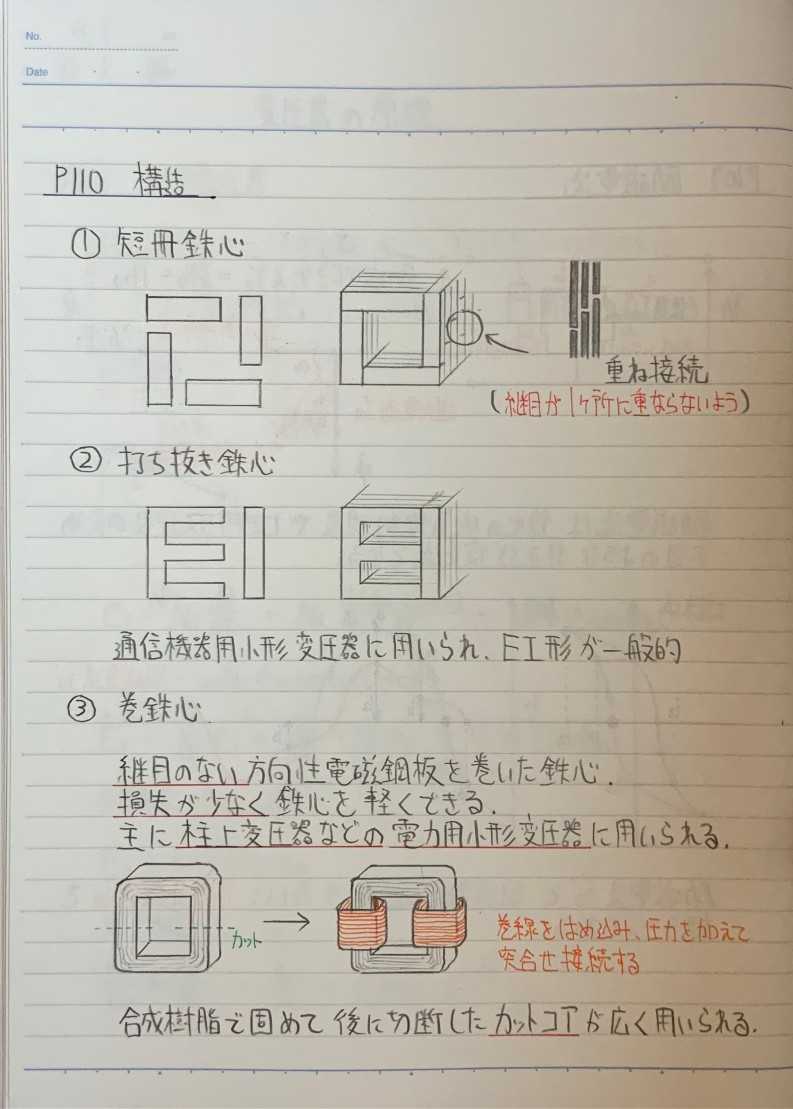 No.
Date
P110 構造
① 短冊鉄心
重ね接続
(継目が1ヶ所に重ならないよう)
② 打ち抜き鉄心
通信機器用小形変圧器に用いられ、EI形が一般的
③ 巻鉄心
継目のない方向性電磁鋼板を巻いた鉄心.
損失が少なく鉄心を軽くできる.
主に柱上変圧器などの電力用小形変圧器に用いられる.
カット
巻線をはめ込み、圧力を加えて
突合せ接続する
合成樹脂で固めて後に切断したカットコアが広く用いられる.